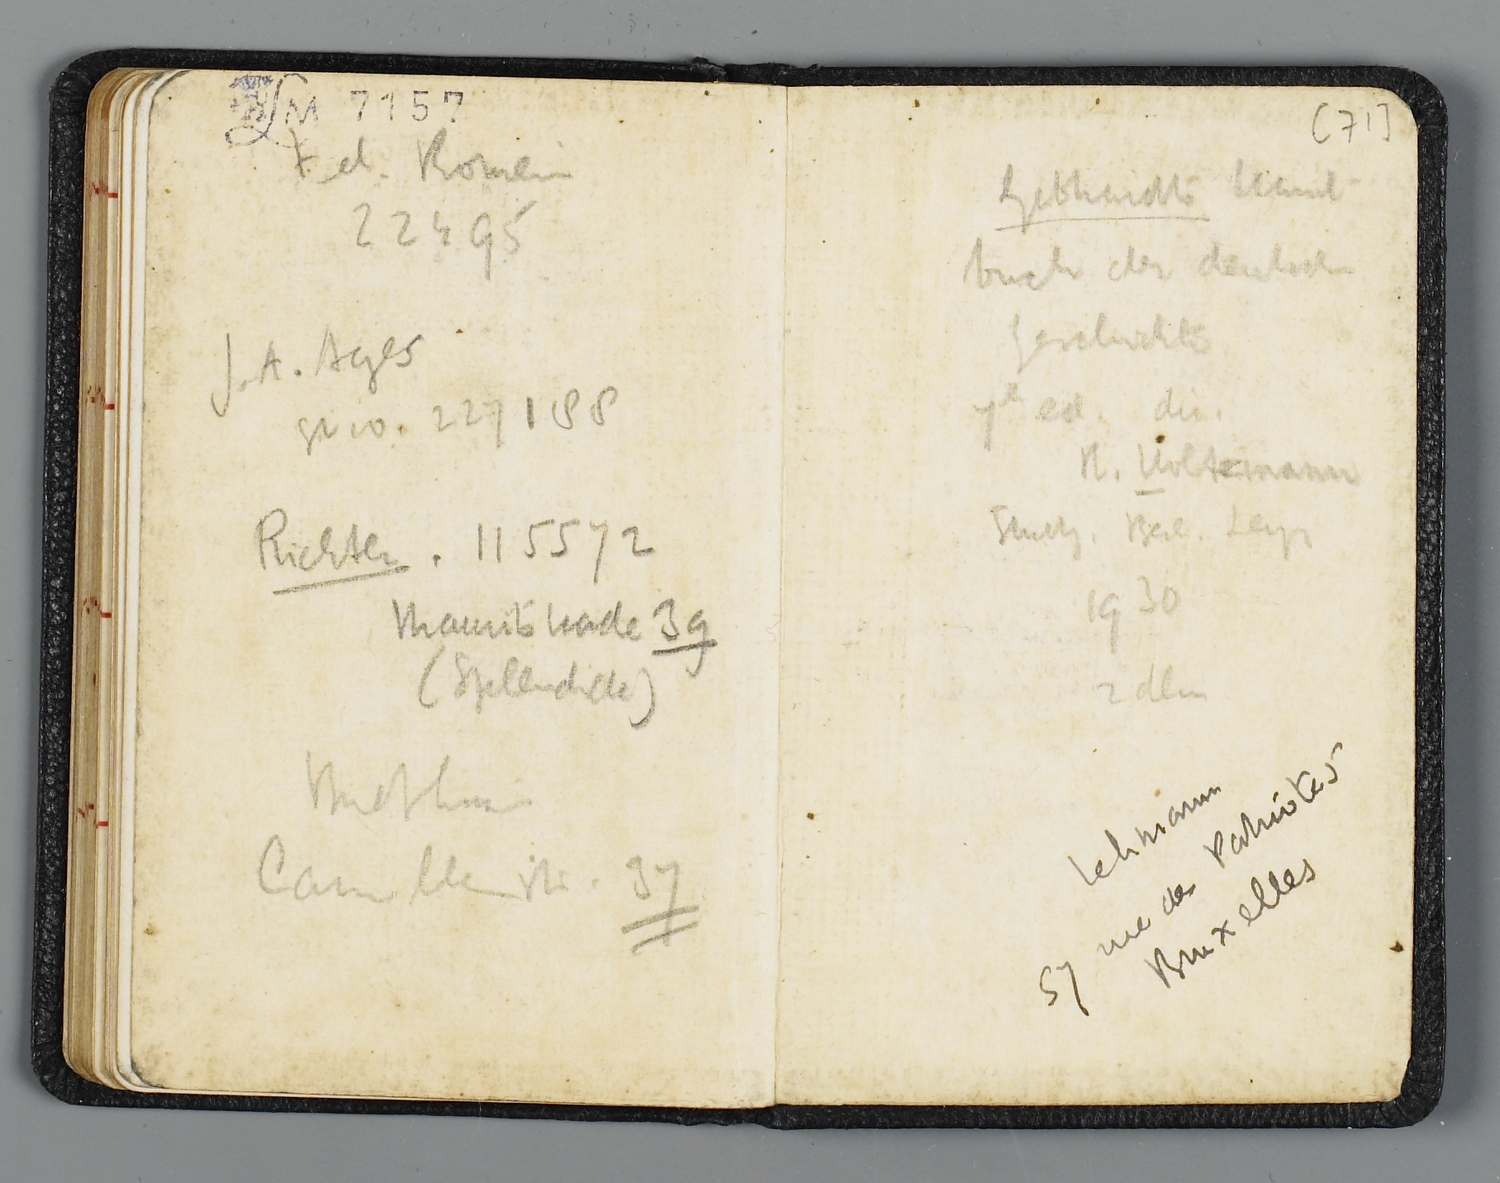 M 7157
tel. Romein
22495
J. A. Ages
giro. 227188
Richter. 115572
Mauritskade 39
(Spellendide)
37
[71]
Gebhardts Hand-
buch der deutschen
Geschichte
7e ed. dir.
R. Holtzmann
Stuttg. Berl. Leipz
1930
2 dln
Lehmann
57 rue des Patriotes
Bruxelles